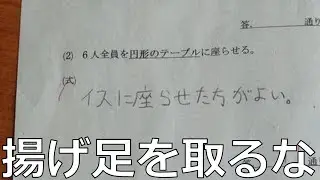 答. 通り
(2) 6人全員を円形のテーブルに座らせる。
(式)
イスに座らせたちがよい。
答 通り
揚げ足を取るな